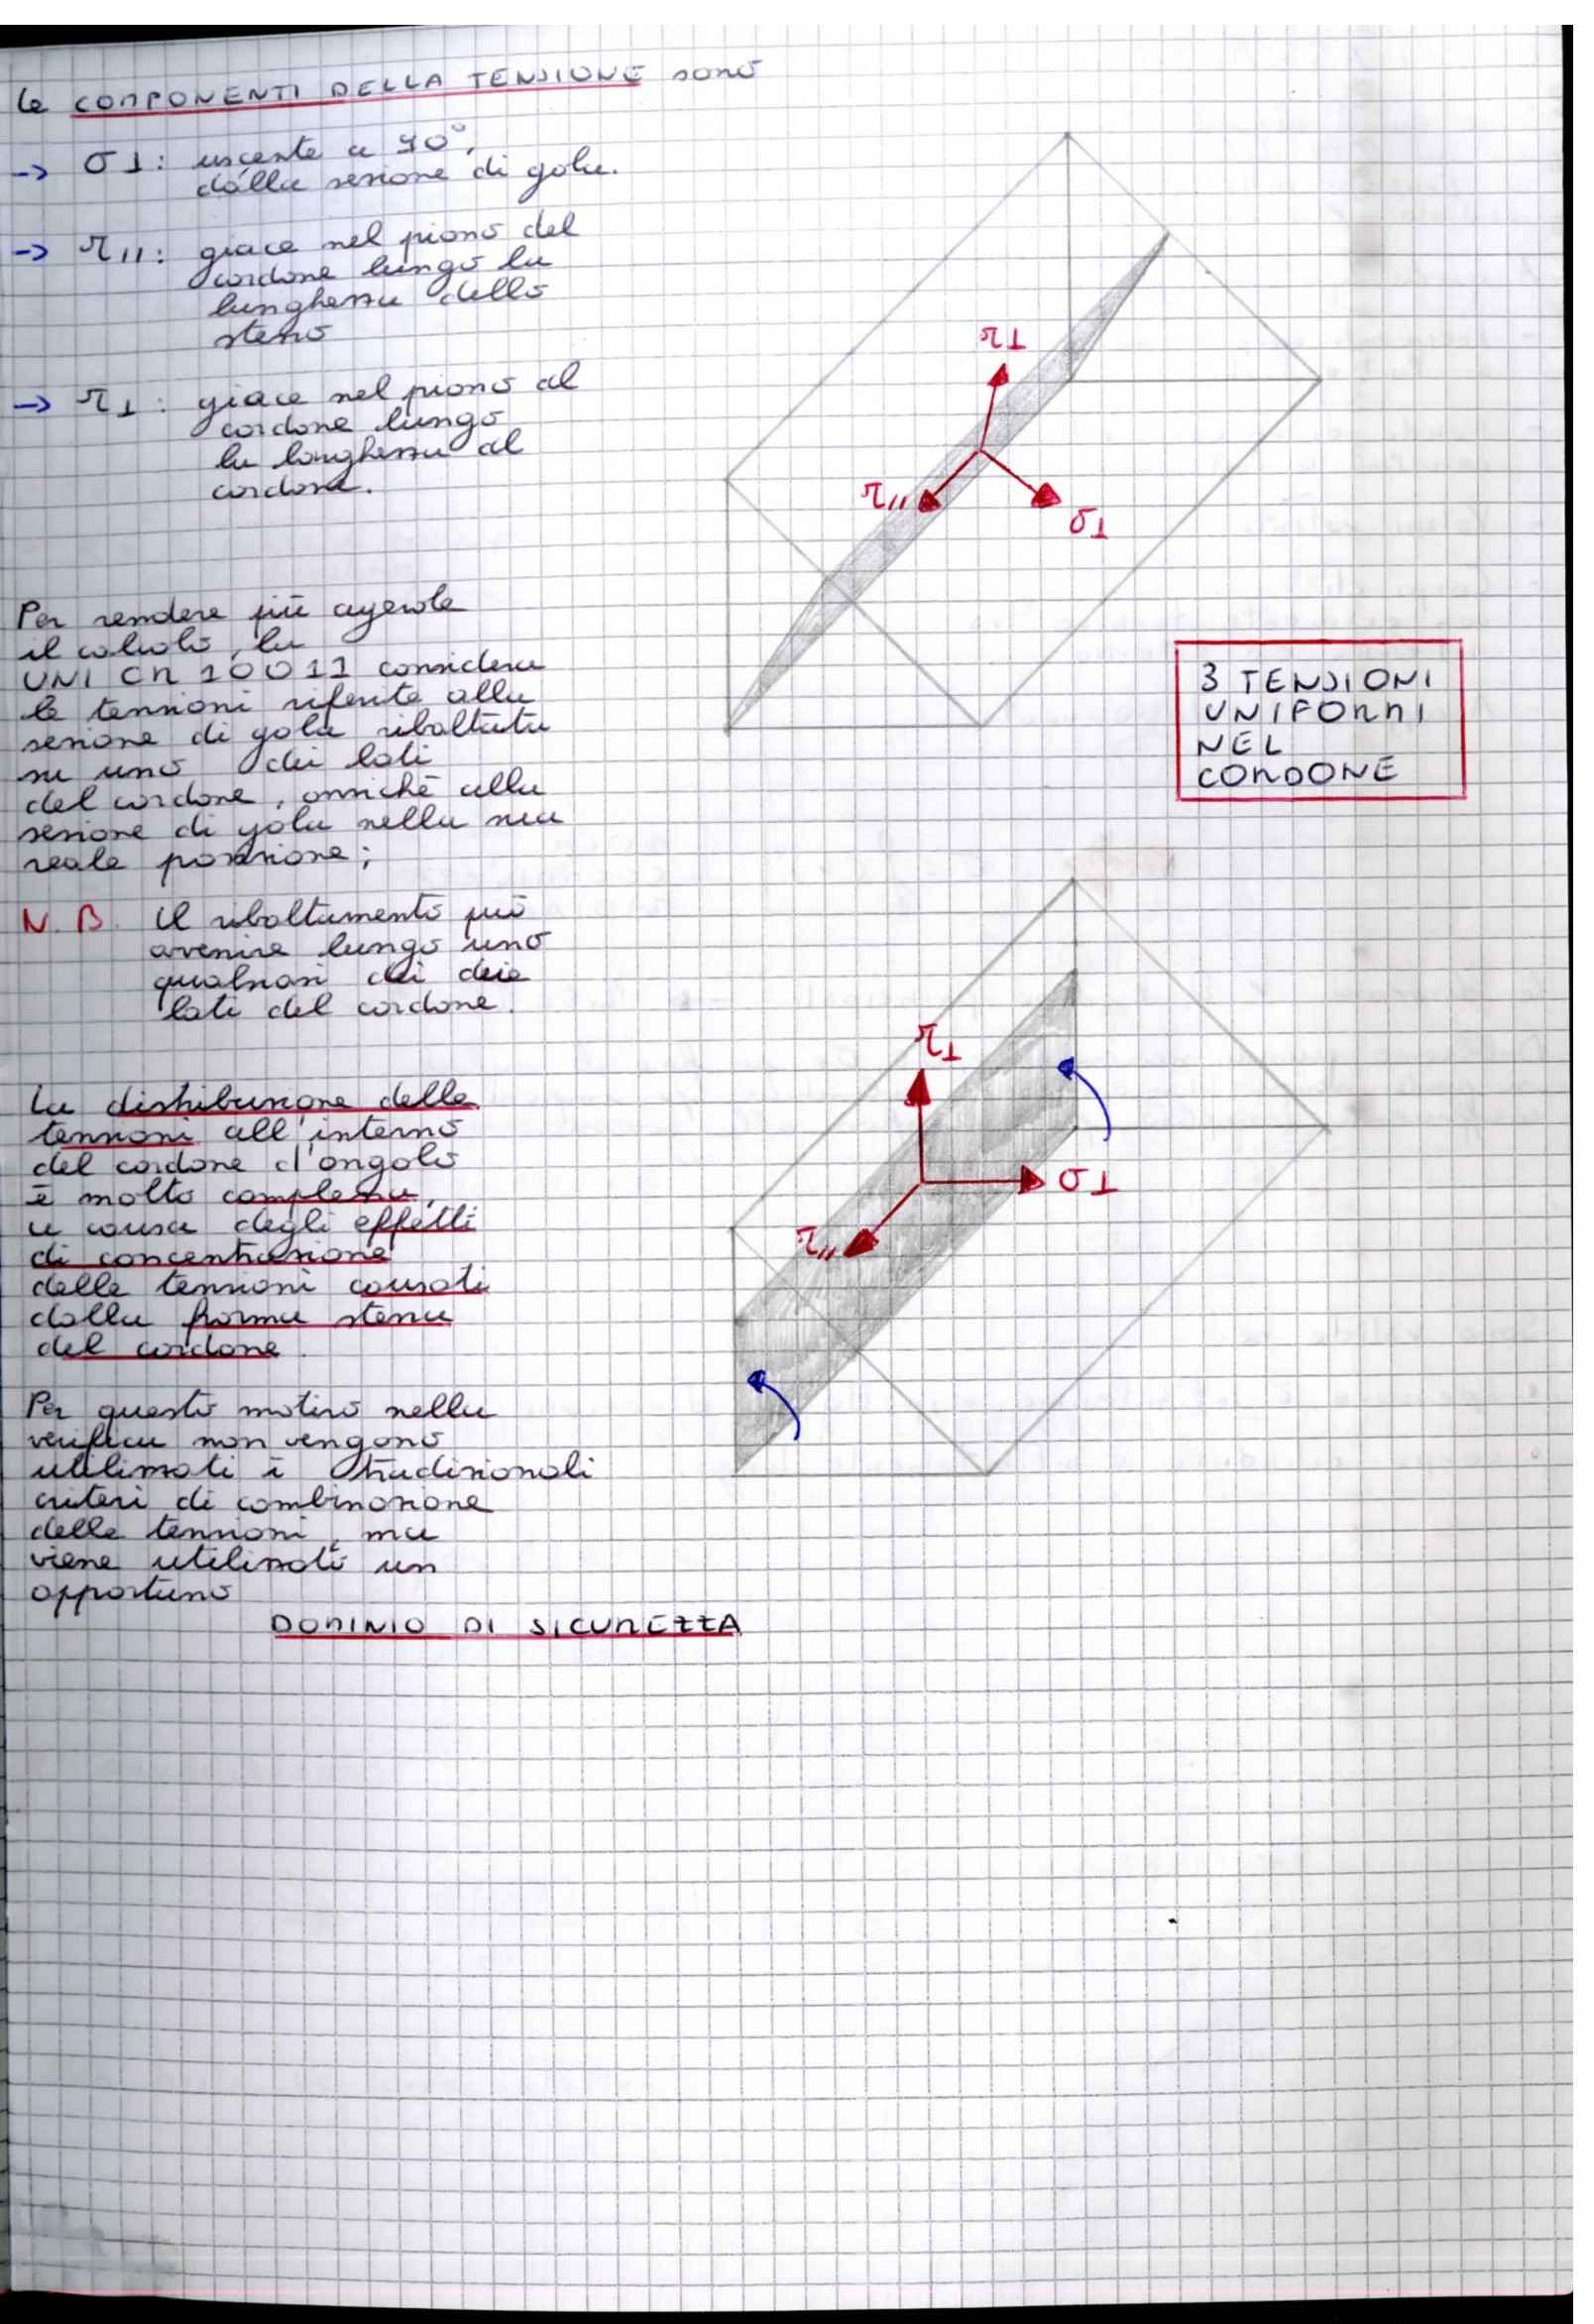 Le COMPONENTI DELLA TENSIONE sono
→ σ⊥: uscente a 90°,
dalla sezione di gola.
→ τ//: giace nel piano del
cordone lungo la
lunghezza dello
stesso
→ τ⊥: giace nel piano al
cordone lungo
la larghezza al
cordone.
τ⊥
τ//
σ⊥
Per rendere più agevole
il calcolo, la
UNI CNR 10011 considera
le tensioni riferite alla
sezione di gola ribaltata
su uno dei lati
del cordone, anziché alla
sezione di gola nella sua
reale posizione;
3 TENSIONI
UNIFORMI
NEL
CORDONE
N.B. Il ribaltamento può
avenire lungo uno
qualsiasi dei due
lati del cordone.
τ⊥
σ⊥
τ//
La distribuzione delle
tensioni all'interno
del cordone d'angolo
è molto complessa,
a causa degli effetti
di concentrazione
delle tensioni causati
dalla forma stessa
del cordone.
Per questo motivo nella
verifica non vengono
utilizzati i tradizionali
criteri di combinazione
delle tensioni, ma
viene utilizzato un
opportuno
DOMINIO DI SICUREZZA